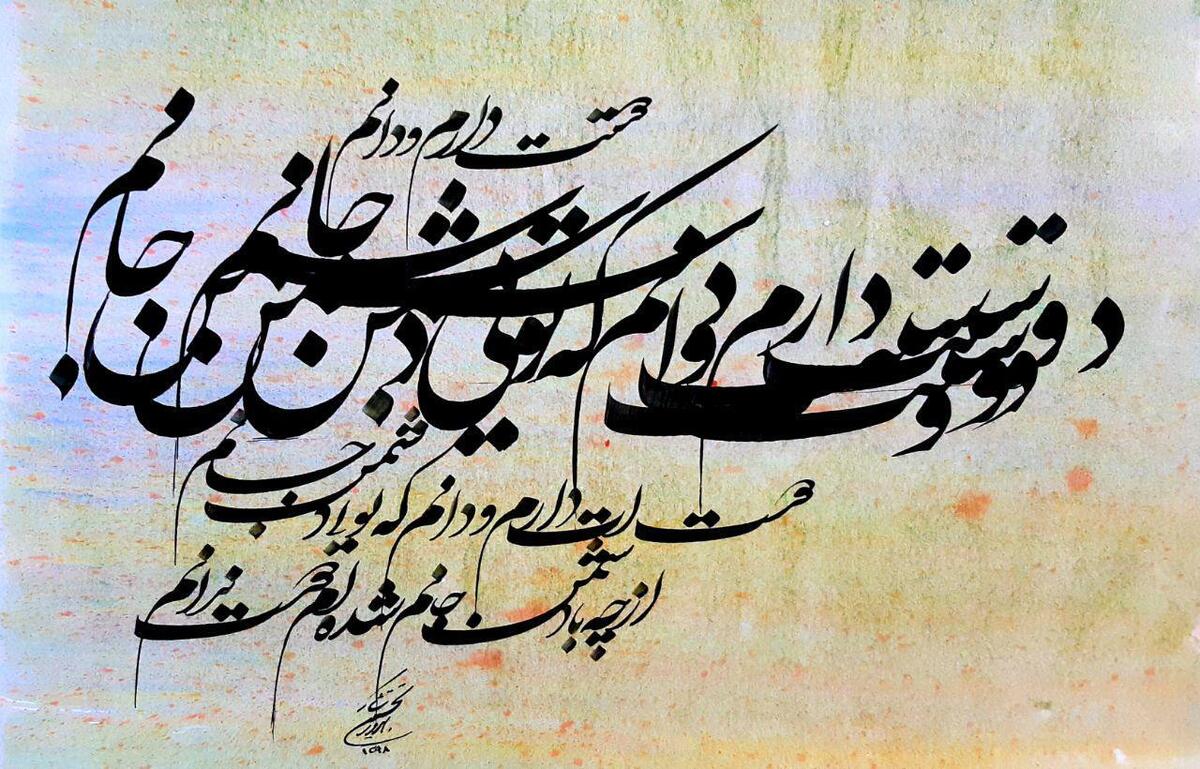 دوستت دارم و دانم
دوستت دارم و دانم که تویی دشمن جانم
دوستت دارم و دانم که تویی دشمن جانم
از چه با دشمن جانم شده ام دوست ندانم
۱۳۹۸